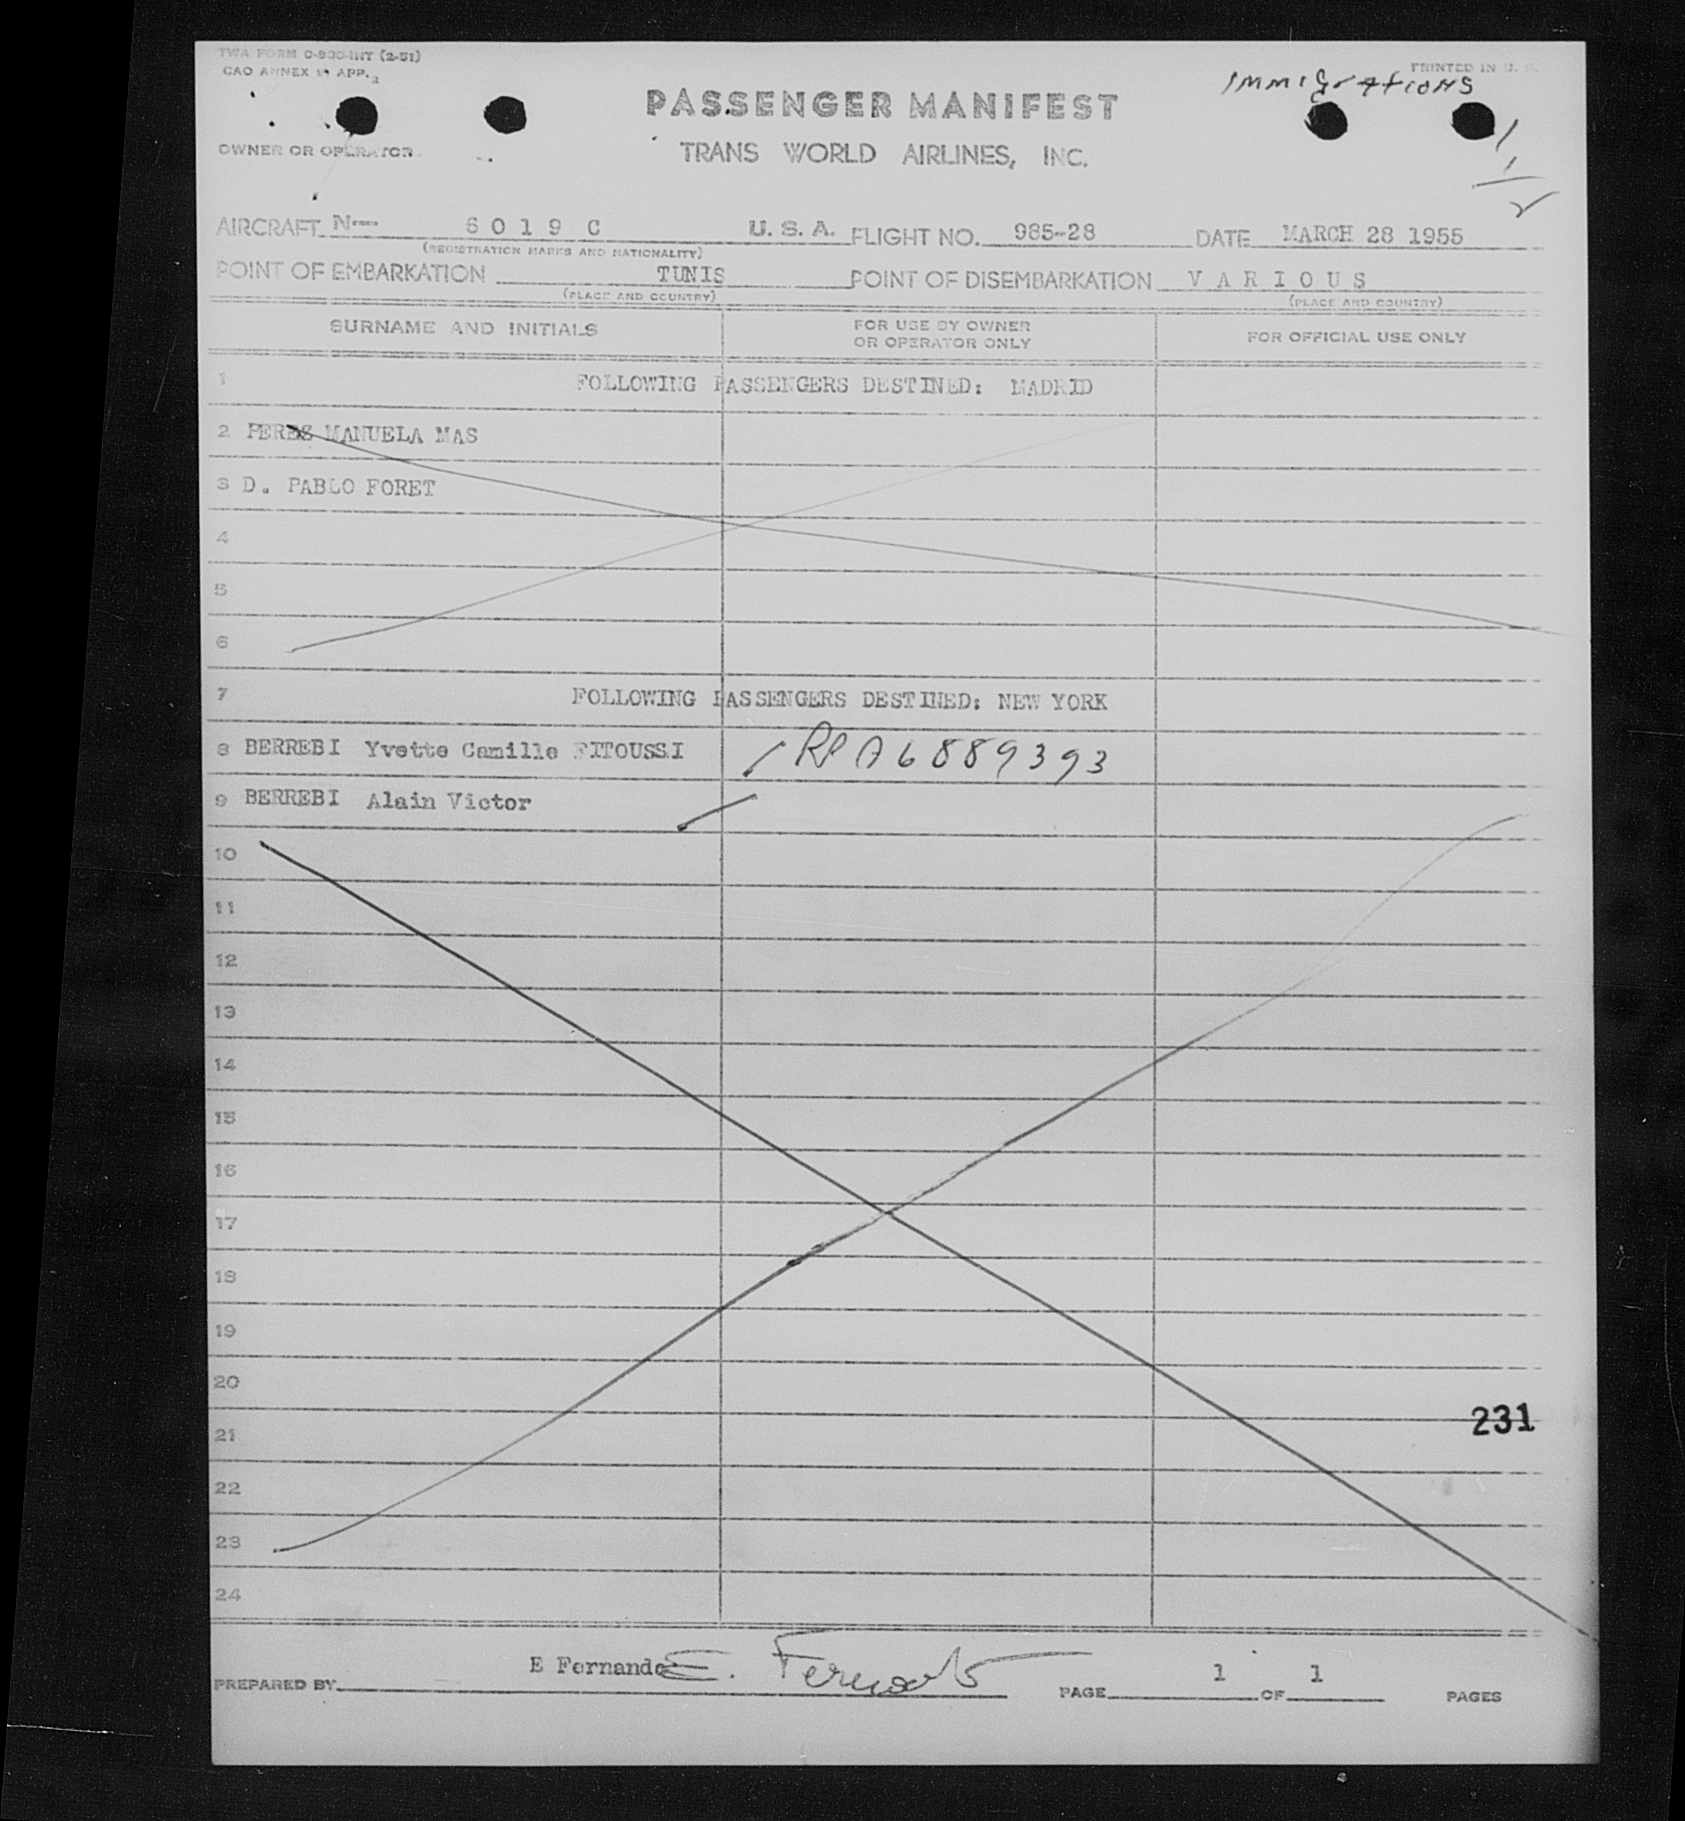 TWA FORM O-800-INT (2-51)
CAO ANNEX 9 APP. 2
PRINTED IN U. S.
IMMIGrAtIONS
PASSENGER MANIFEST
OWNER OR OPERATOR
TRANS WORLD AIRLINES, INC.
1
1
2
AIRCRAFT N--- 6 0 1 9 C U. S. A. FLIGHT NO. 985-28 DATE MARCH 28 1955
(REGISTRATION MARKS AND NATIONALITY)
POINT OF EMBARKATION TUNIS POINT OF DISEMBARKATION V A R I O U S
(PLACE AND COUNTRY) (PLACE AND COUNTRY)
SURNAME AND INITIALS FOR USE BY OWNER OR OPERATOR ONLY FOR OFFICIAL USE ONLY
1 FOLLOWING PASSENGERS DESTINED: MADRID
2 PEREZ MANUELA MAS
3 D. PABLO FORET
4
5
6
7 FOLLOWING PASSENGERS DESTINED: NEW YORK
8 BERREBI Yvette Camille FITOUSSI RP A6889393
9 BERREBI Alain Victor
10
11
12
13
14
15
16
17
18
19
20
231
21
22
23
24
E Fernando E. Fernando
PREPARED BY PAGE 1 OF 1 PAGES